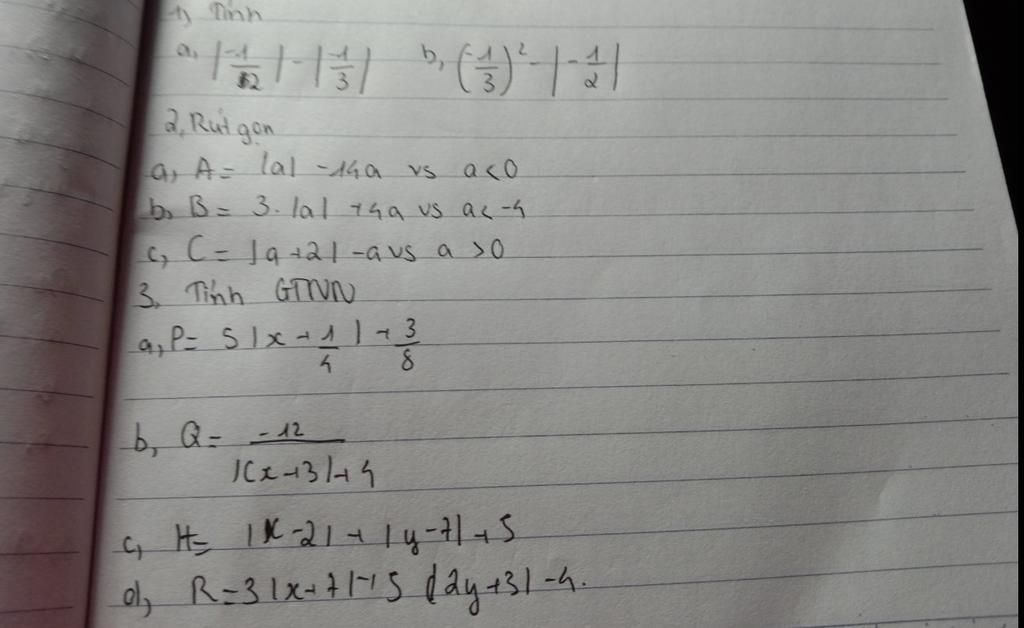 1, Tính
a, |-1/2| - |-1/3| b, (-1/3)² - |-1/2|
2, Rút gọn
a, A = |a| - 14a vs a < 0
b, B = 3.|a| + 4a vs a < -4
c, C = |a + 2| - a vs a > 0
3, Tính GTNN
a, P = 5|x + 1/4| + 3/8
b, Q = -12/|x+3|+4
c, H = |x - 2| + |y - 7| + 5
d, R = 3|x + 7| + 5|2y + 3| - 4.